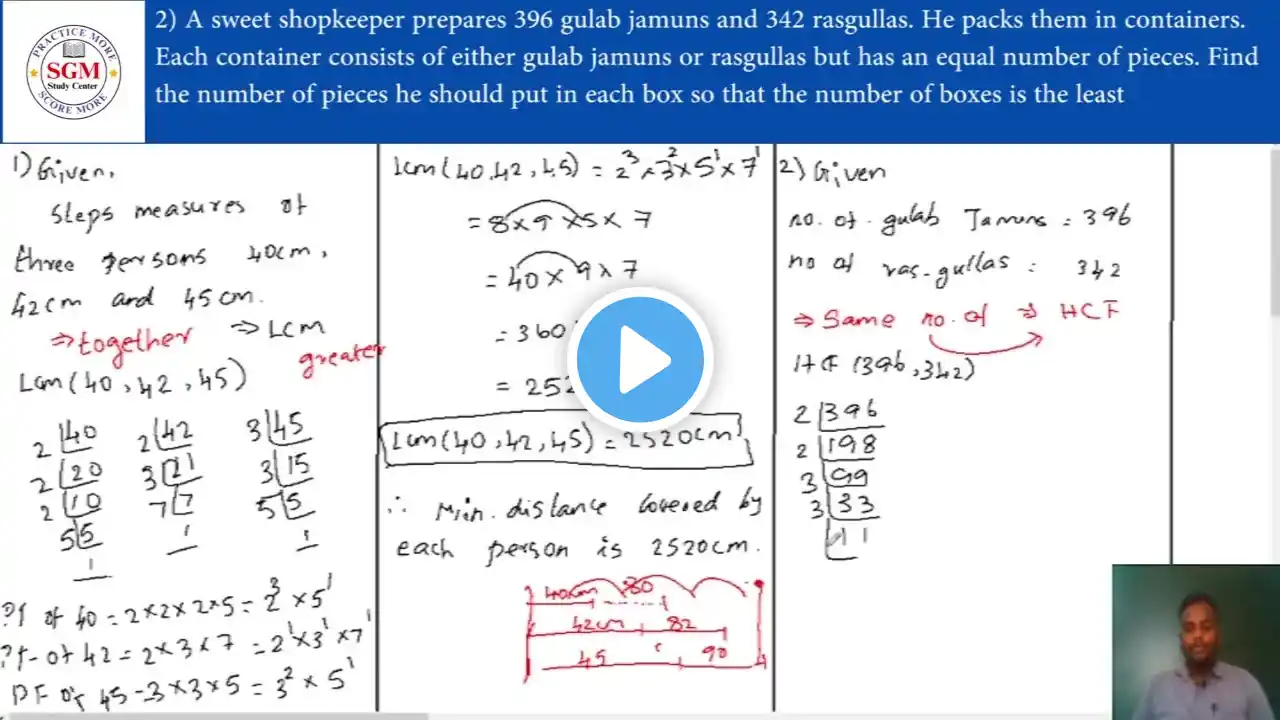 2) A sweet shopkeeper prepares 396 gulab jamuns and 342 rasgullas. He packs them in containers.
Each container consists of either gulab jamuns or rasgullas but has an equal number of pieces. Find
the number of pieces he should put in each box so that the number of boxes is the least
PRACTICE MORE
SGM
Study Center
SCORE MORE
1) Given,
steps measures of
three persons 40cm,
42cm and 45cm.
⇒ together ⇒ LCM
greater
Lcm (40, 42, 45)
2 |40 2 |42 3 |45
2 |20 3 |21 3 |15
2 |10 7 |7 5 |5
5 |5 1 1
1
of 40 = 2×2×2×5 = 2³ × 5¹
of 42 = 2×3×7 = 2¹×3¹×7¹
PF of 45 - 3×3×5 = 3² × 5¹
Lcm (40, 42, 45) = 2³×3²×5¹×7¹
= 8×9×5×7
= 40×9×7
= 360
= 252
Lcm (40, 42, 45) = 2520cm
∴ Min. distance covered by
each person is 2520cm.
40cm 80
42cm 82
45 90
2) Given
no. of. gulab Jamuns = 396
no of ras-gullas = 342
⇒ Same no. of ⇒ HCF
HCF (396, 342)
2 |396
2 |198
3 |99
3 |33
11